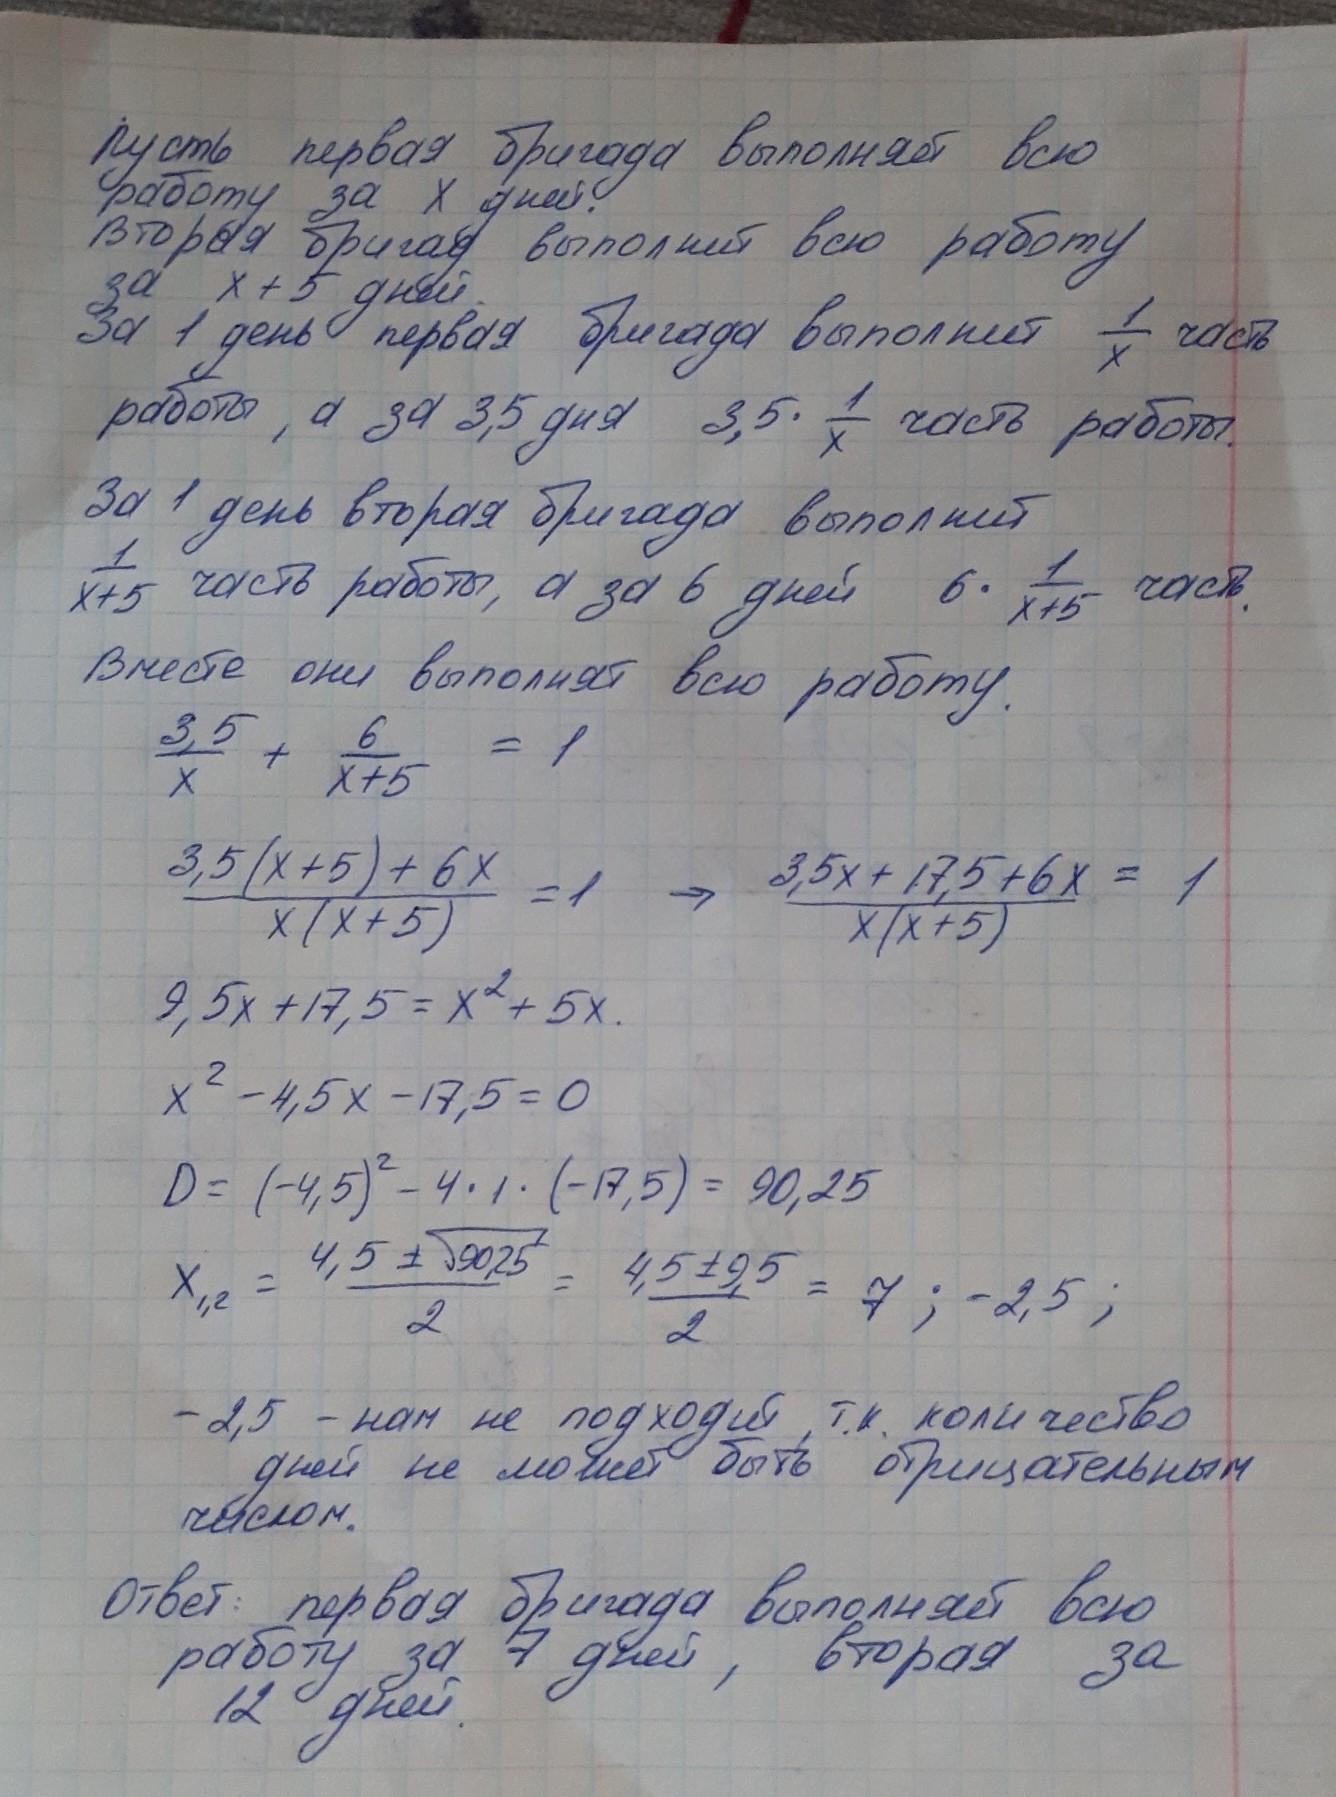 Пусть первая бригада выполняет всю
работу за x дней.
Вторая бригад выполнит всю работу
за x+5 дней.
За 1 день первая бригада выполнит 1/x часть
работы, а за 3,5 дня 3,5 · 1/x часть работы.
За 1 день вторая бригада выполнит
1/(x+5) часть работы, а за 6 дней 6 · 1/(x+5) часть.
Вместе они выполнят всю работу.
3,5/x + 6/(x+5) = 1
(3,5(x+5)+6x)/(x(x+5)) = 1 → (3,5x+17,5+6x)/(x(x+5)) = 1
9,5x+17,5 = x² + 5x.
x² - 4,5x - 17,5 = 0
D = (-4,5)² - 4 · 1 · (-17,5) = 90,25
x₁,₂ = (4,5 ± √90,25)/2 = (4,5 ± 9,5)/2 = 7 ; -2,5 ;
-2,5 - нам не подходит, т.к. количество
дней не может быть отрицательным
числом.
Ответ: первая бригада выполняет всю
работу за 7 дней, вторая за
12 дней.